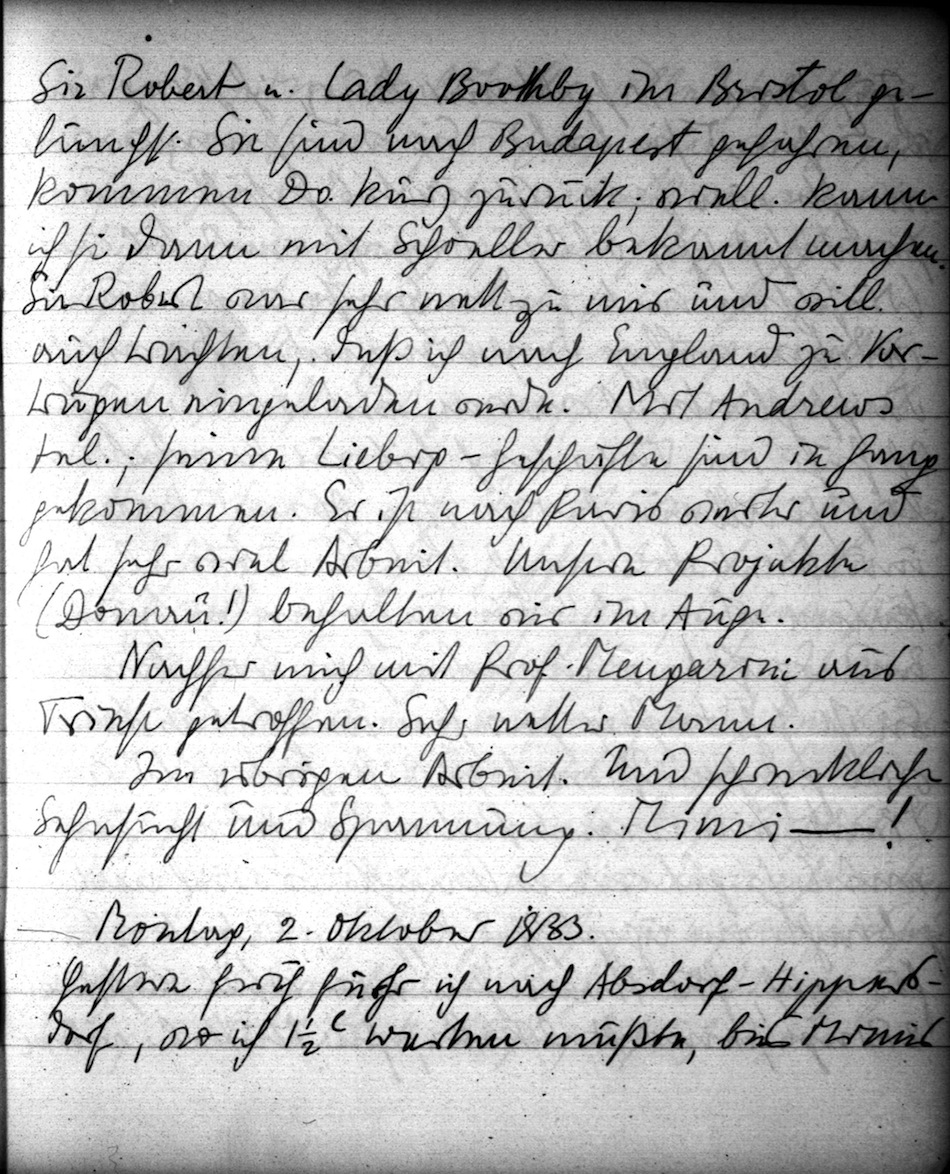 Sir Robert u. Lady Boothby im Bristol ge-
luncht. Sie sind nach Budapest gefahren,
kommen Do. kurz zurück; viell. kann
ich sie dann mit Schoeller bekannt machen.
Sir Robert war sehr nett zu mir und will
auch trachten, daß ich nach England zu Vor-
trägen eingeladen werde. Mit Andrews
tel.; seine Geschäfte sind in Gang
gekommen. Er ist nach Paris weiter und
hat sehr viel Arbeit. Unsere Projekte
(Donau!) behalten wir im Auge.
Nachher mich mit Prof. Mengarini aus
Triest getroffen. Sehr netter Mann.
Im übrigen Arbeit. Und schreckliche
Sehnsucht und Spannung. Mimi — !
Montag, 2. Oktober 1933.
Gestern früh fuhr ich nach Absdorf-Hippers-
dorf, wo ich 1½ warten mußte, bis Mimis